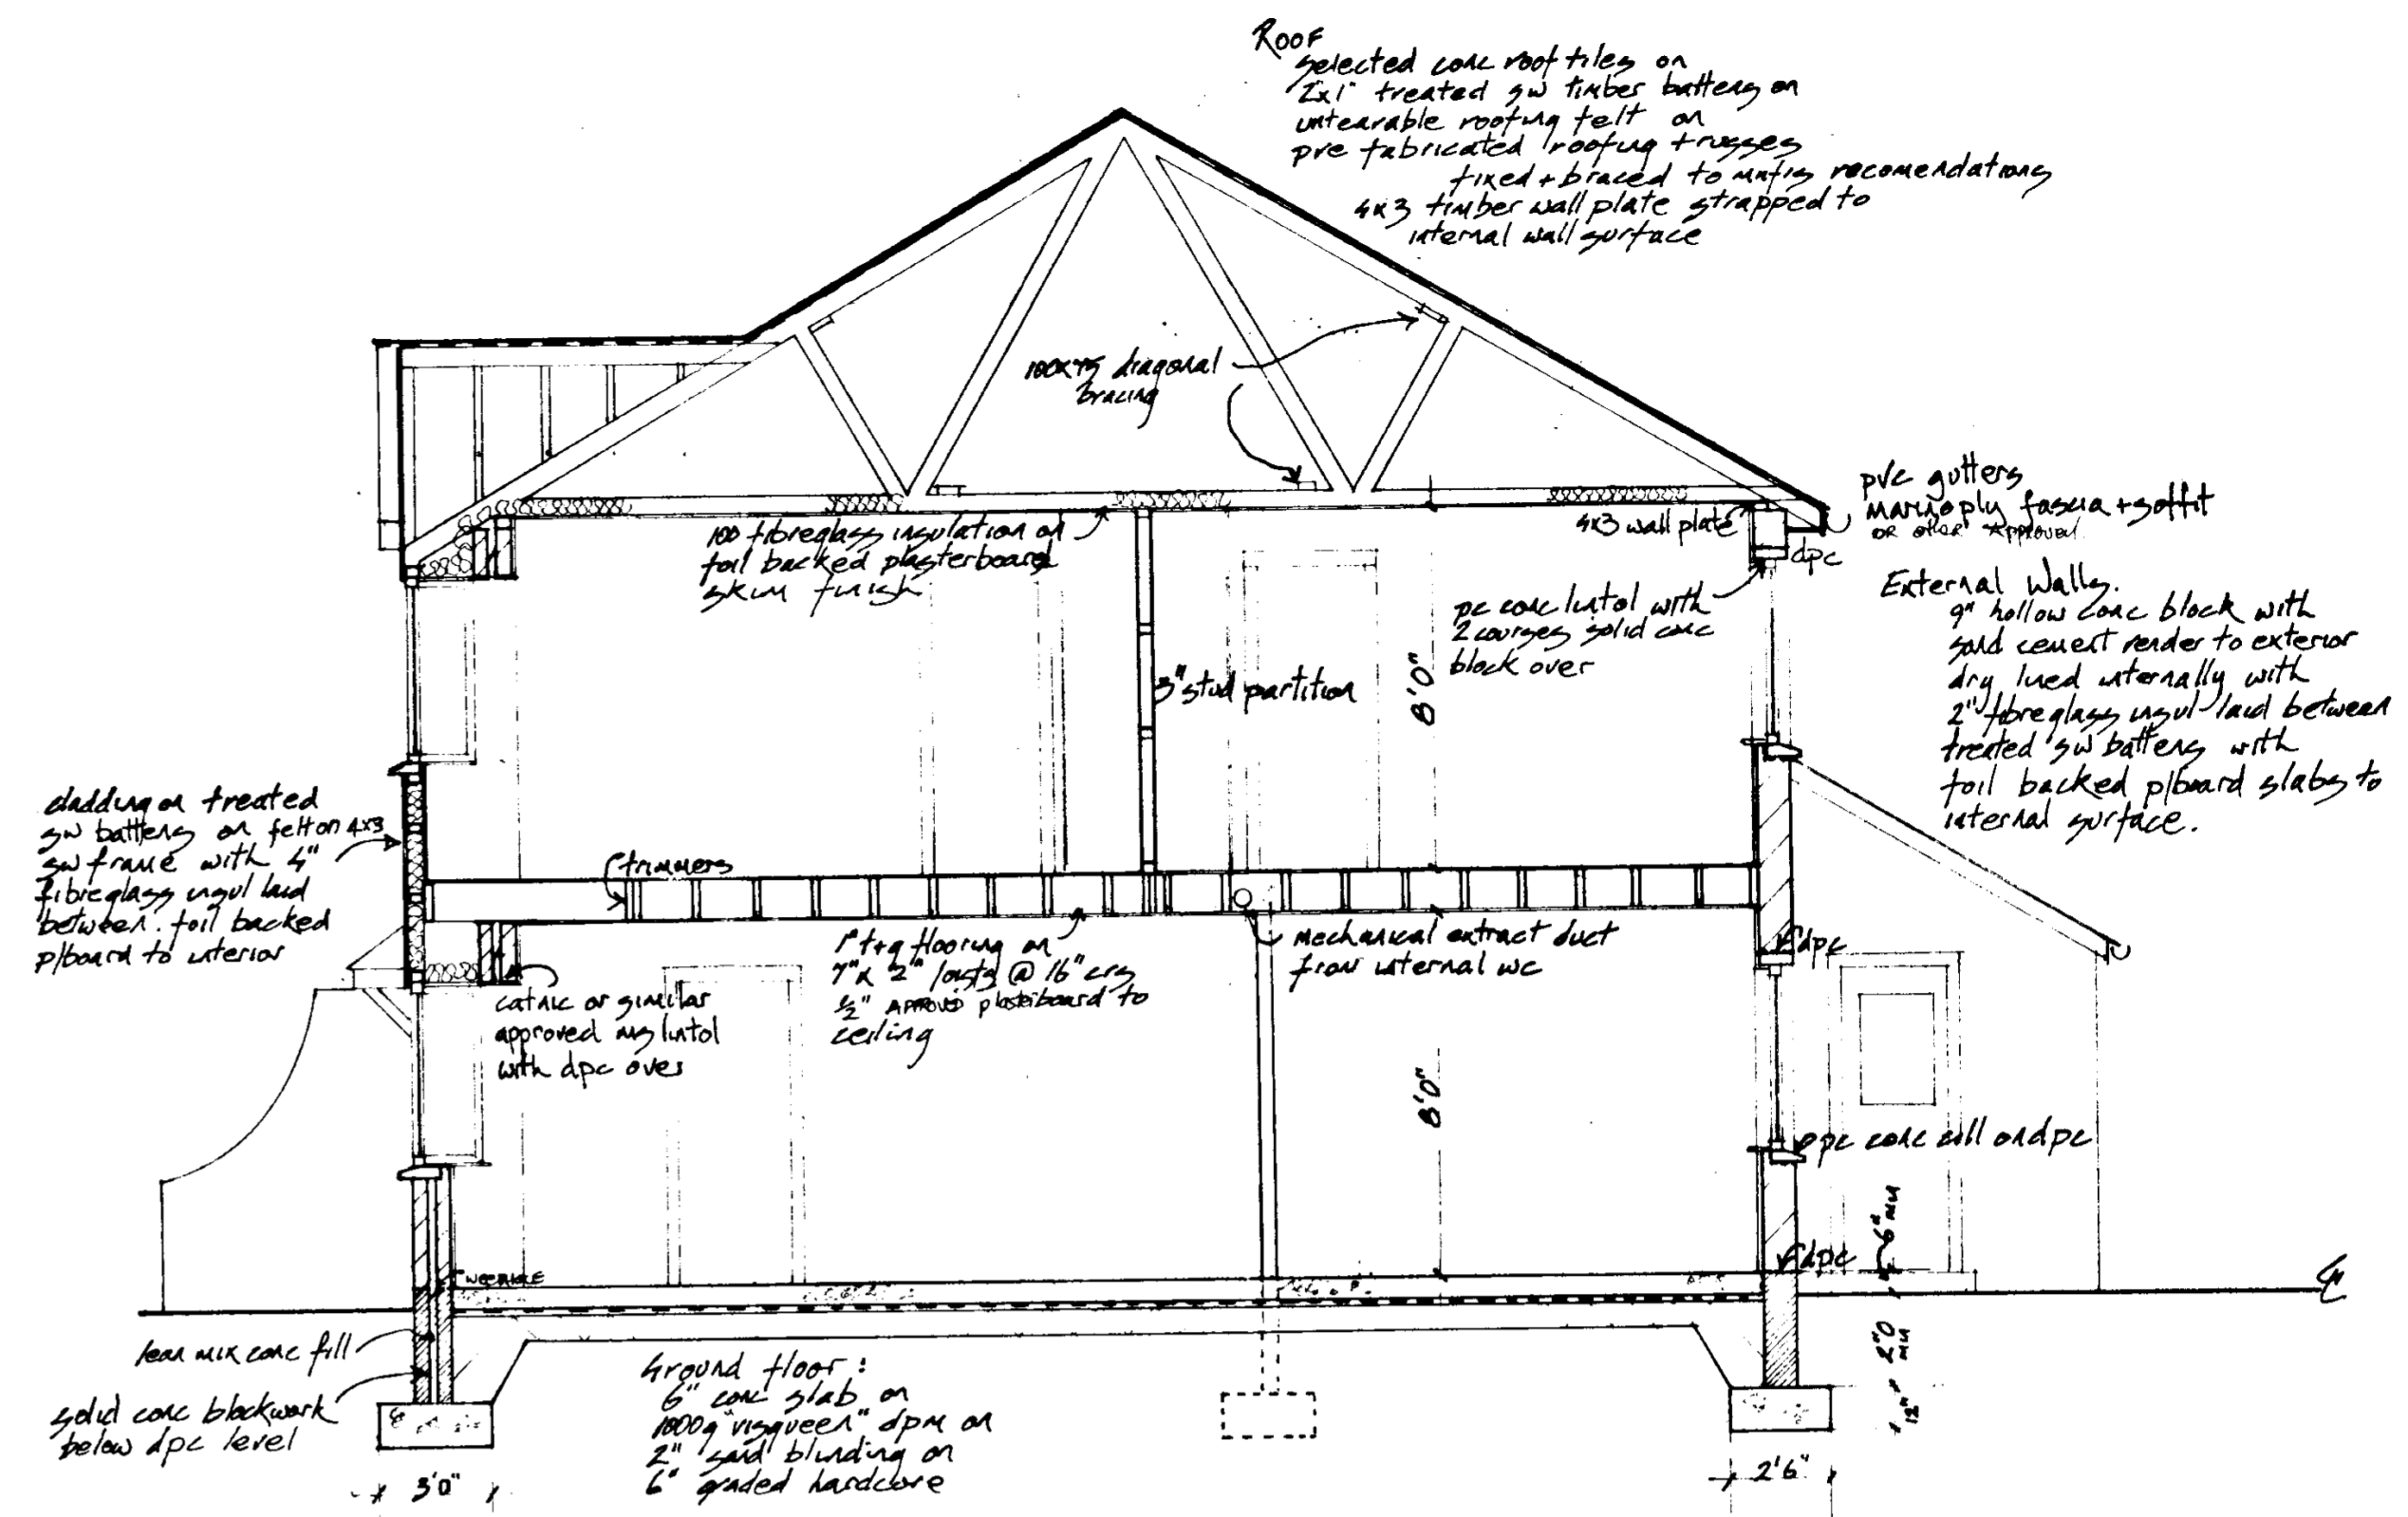 Roof
selected conc roof tiles on
2x1" treated sw timber battens on
untearable roofing felt on
pre fabricated roofing trusses
fixed + braced to mnfrs recomendations
4x3 timber wall plate strapped to
internal wall surface
100x75 diagonal
bracing
pvc gutters
marineply fascia + soffit
OR other APPROVED
4x3 wall plate
dpc
100 fibreglass insulation on
foil backed plasterboard
skim finish
pc conc lintol with
2 courses solid conc
block over
External Walls.
9" hollow conc block with
sand cement render to exterior
dry lined internally with
2" fibreglass insul laid between
treated sw battens with
foil backed p/board slabs to
internal surface.
3" stud partition
8'0"
cladding on treated
sw battens on felt on 4x3
sw frame with 4"
fibreglass insul laid
between. foil backed
p/board to interior
trimmers
1" t+g flooring on
7" x 2" joists @ 16" crs
1/2" APPROVED plasterboard to
ceiling
mechanical extract duct
from internal wc
dpc
catnic or similar
approved ms lintol
with dpc over
8'0"
pc conc cill on dpc
6" MIN
dpc
WEEPHOLE
lean mix conc fill
solid conc blockwork
below dpc level
Ground floor:
6" conc slab on
1000g "visqueen" dpm on
2" sand blinding on
6" graded hardcore
2'0
MIN
12"
3'0"
2'6"